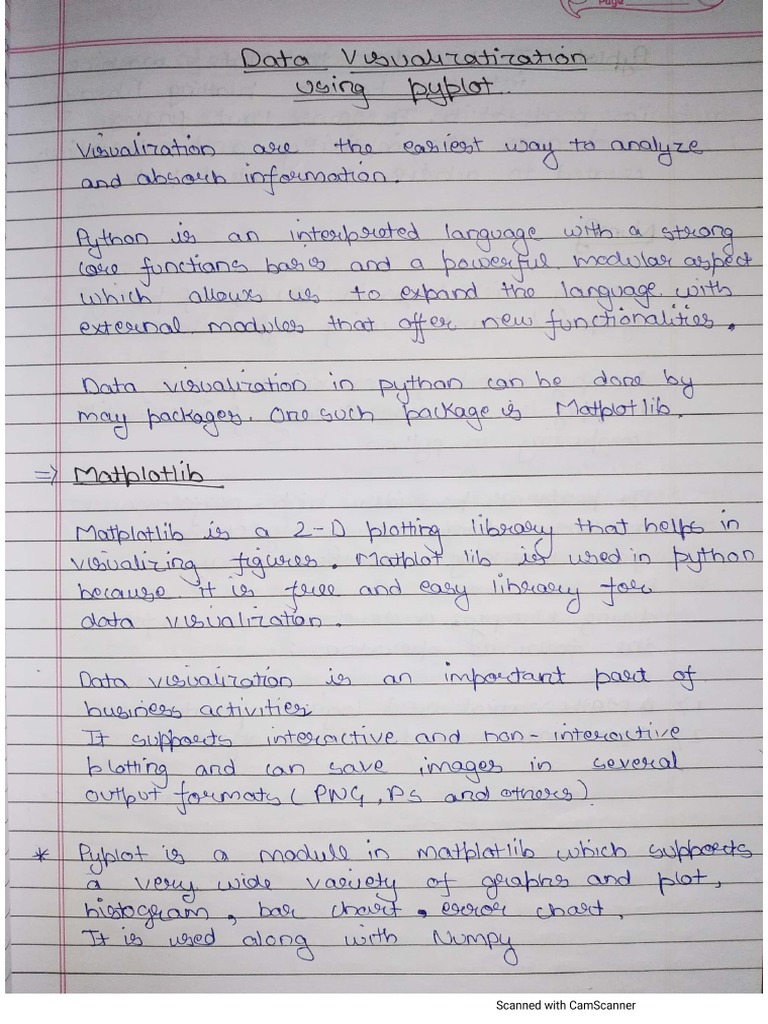 Page
Data Visualizatization
using pyplot.
Visualization are the easiest way to analyze
and absorb information.
Python is an interpreted language with a strong
core functions basis and a powerful modular aspect
which allows us to expand the language with
external modules that offer new functionalities.
Data visualization in python can be done by
may packages. One such package is Matplotlib.
=> Matplotlib
Matplotlib is a 2-D plotting library that helps in
visualizing figures. Matplot lib is used in python
because it is free and easy library for
data visualization.
Data visualization is an important part of
business activities.
It supports interactive and non-interactive
plotting and can save images in several
output formats (PNG, PS and others)
* Pyplot is a module in matplotlib which supports
a very wide variety of graphs and plot,
histogram, bar chart, error chart,
It is used along with Numpy
Scanned with CamScanner